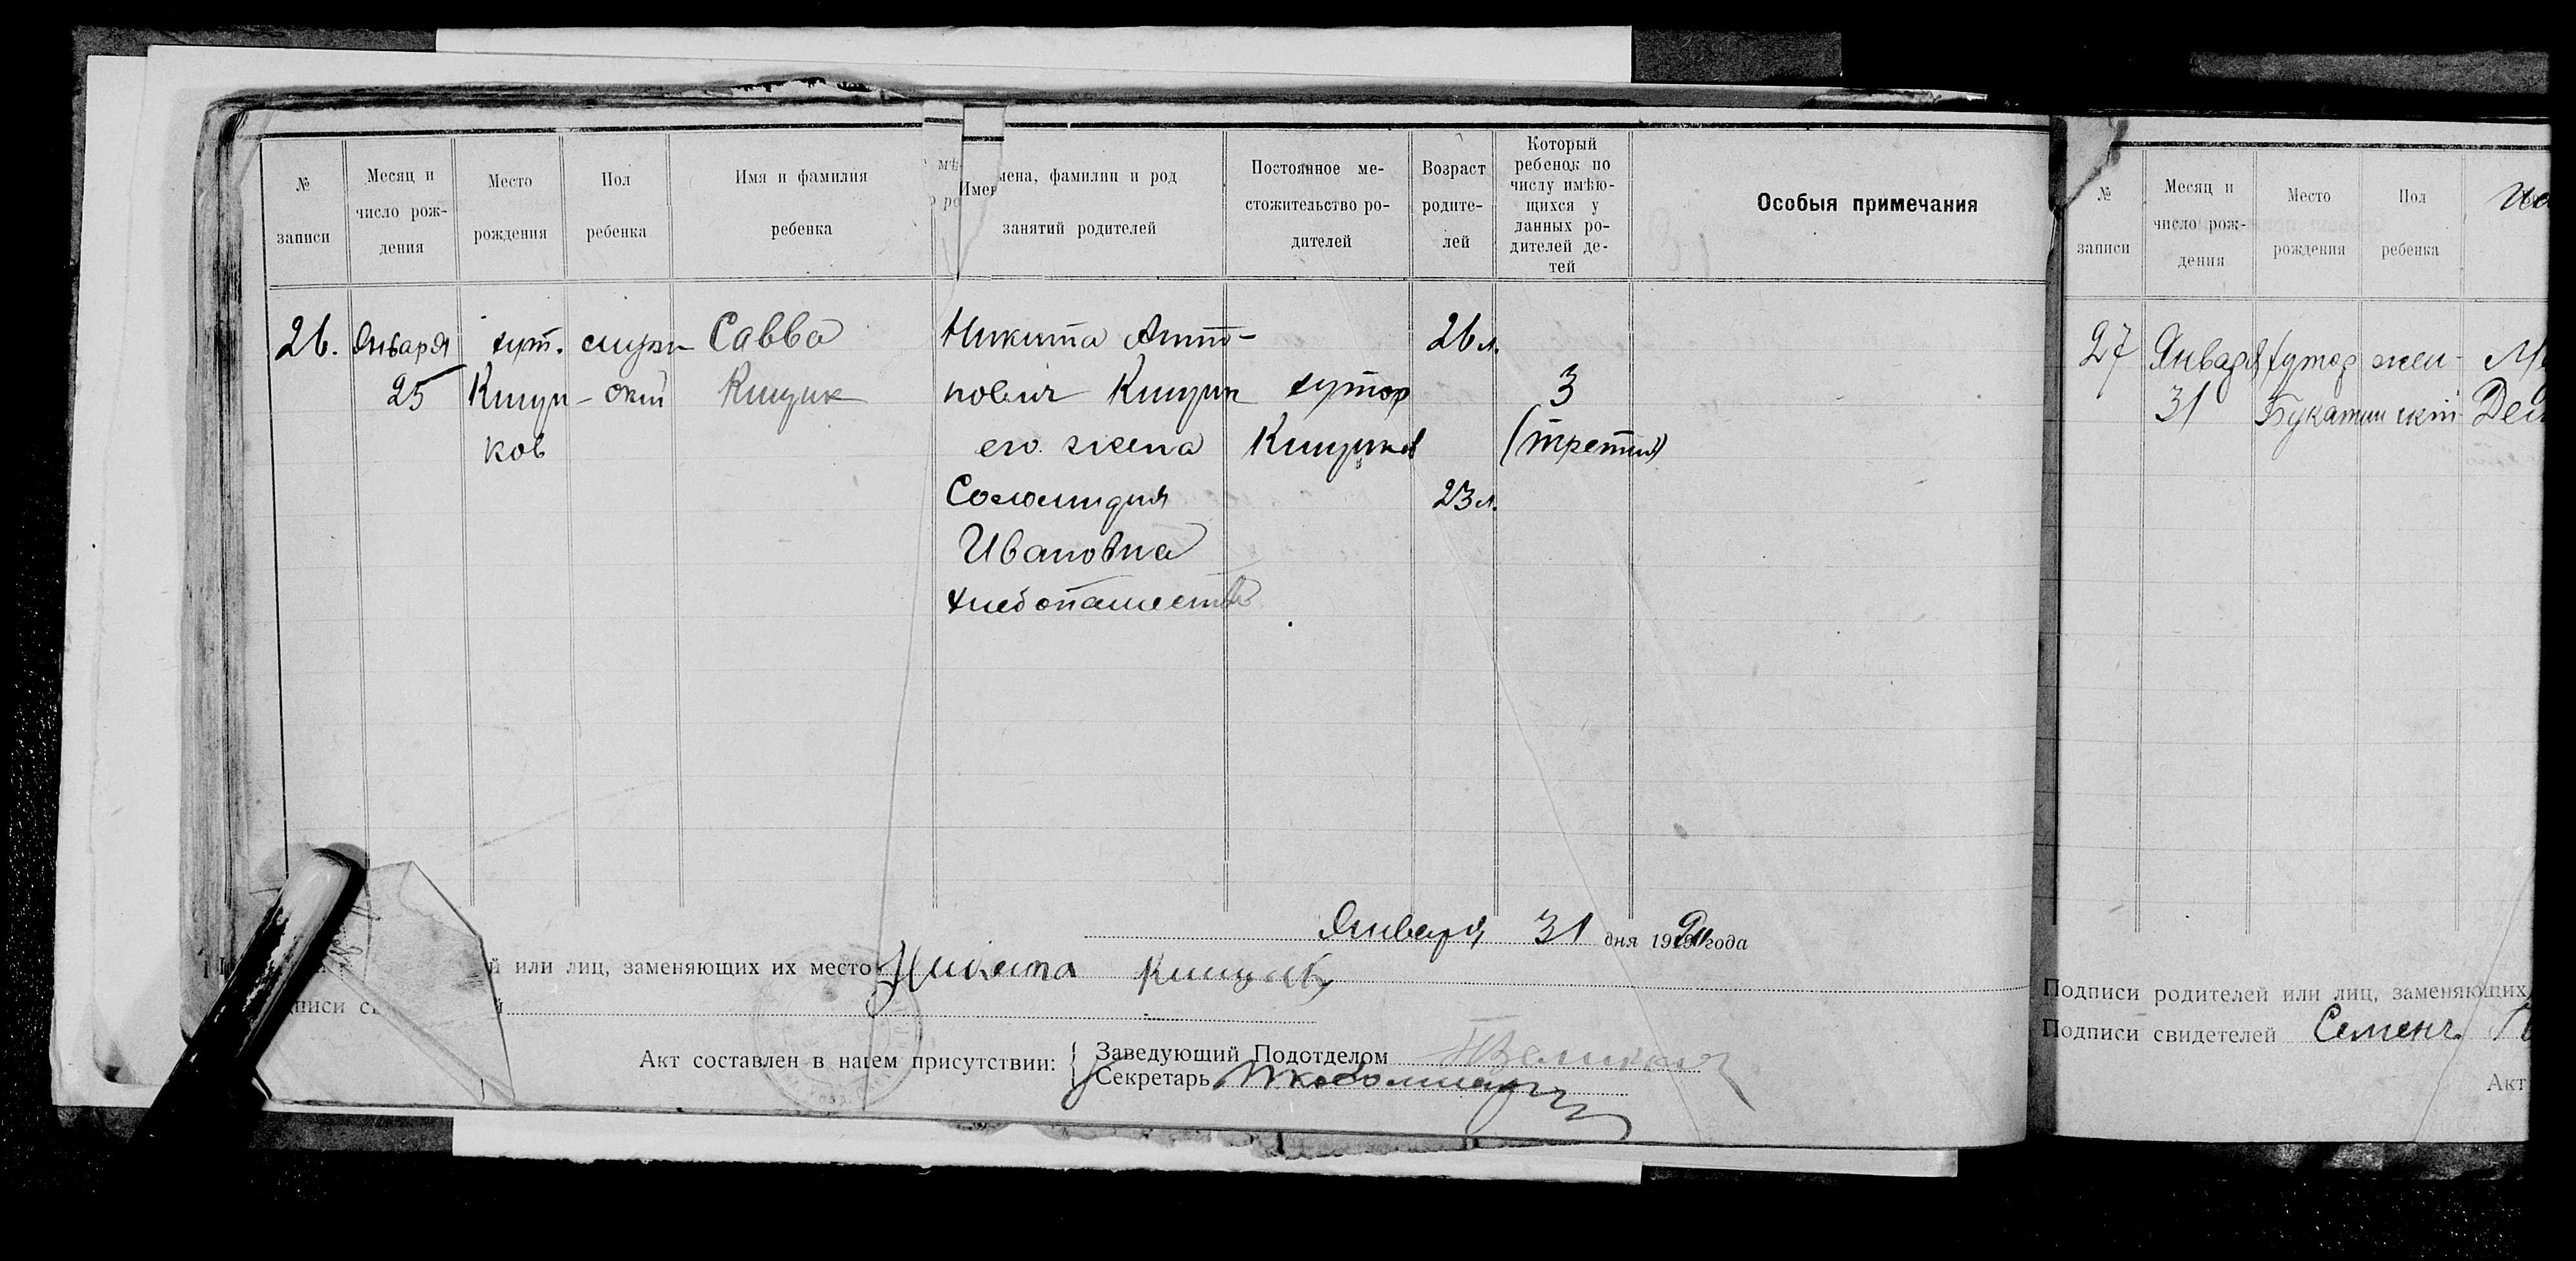 № записи
Месяц и число рождения
Место рождения
Пол ребенка
Имя и фамилия ребенка
мена, фамилии и род занятий родителей
Постоянное местожительство родителей
Возраст родителей
Который ребенок по числу имѣющихся у данных родителей детей
Особыя примечания
26. Января хут. мужс- Савва Никита Анто- 26 л.
25 Кищи- кий Кищик нович Кищик хутор 3
ков его жена Кищиков (третий)
Соломидия 23 л.
Ивановна
хлебопашество
Января 31 дня 19 года
й или лиц, заменяющих их место Никита Кищикъ
писи св
Акт составлен в нашем присутствии:
Заведующий Подотделом
Секретарь
№ записи
Месяц и число рождения
Место рождения
Пол ребенка
27 Января хутор жен-
31 Букатин ский
Подписи родителей или лиц, заменяющих
Подписи свидетелей Семенъ
Акт